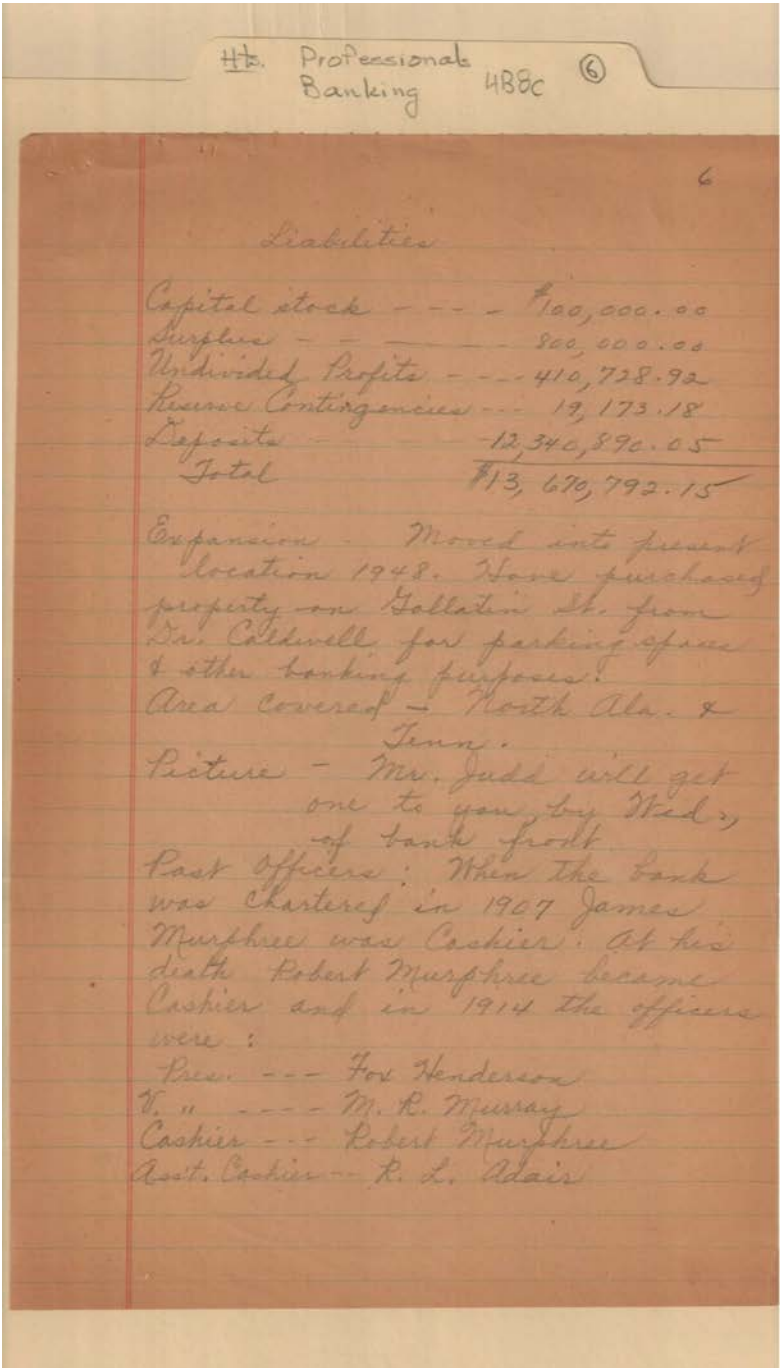 Hts. Professionals
Banking 4B8c 6
6
Liabilities
Capital stock - - - - $100,000.00
Surplus - - ——— 800,000.00
Undivided Profits - - - - 410,728.92
Reserve Contingencies - - - 19,173.18
Deposits - - - 12,340,890.05
Total $13,670,792.15
Expansion - Moved into present
location 1948. Have purchased
property on Gallatin St. from
Dr. Caldwell for parking space
& other banking purposes.
Area covered - North Ala. &
Tenn.
Picture - Mr. Judd will get
one to you by Wed.,
of bank front
Past Officers: When the bank
was chartered in 1907 James
Murphree was Cashier. At his
death Robert Murphree became
Cashier and in 1914 the officers
were:
Pres. - - - Fox Henderson
V. " - - - - M. R. Murray
Cashier - - - Robert Murphree
Asst. Cashier - - R. L. Adair